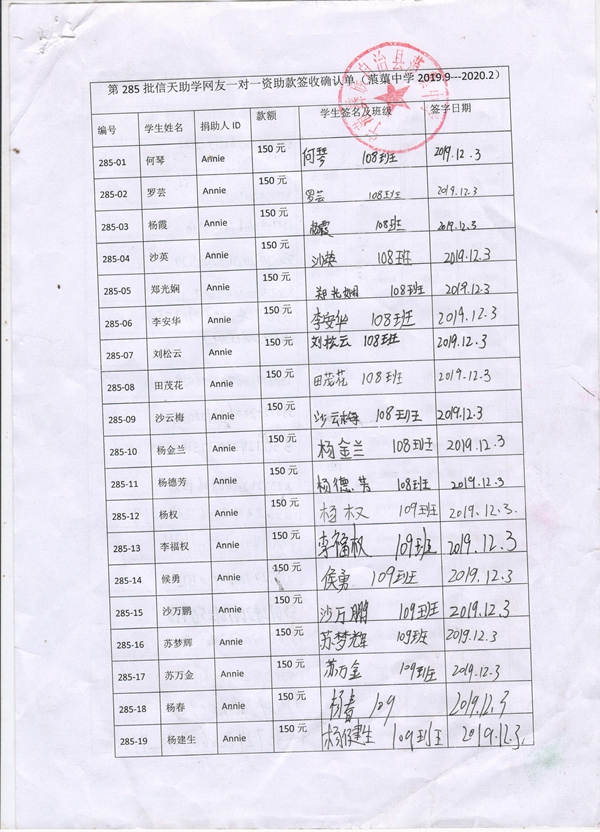 第 285 批信天助学网友一对一资助款签收确认单（蒸葉中学 2019.9---2020.2）
编号 学生姓名 捐助人 ID 款额 学生签名及班级 签字日期
285-01 何琴 Annie 150 元 何琴 108班 2019.12.3
285-02 罗芸 Annie 150 元 罗芸 108班 2019.12.3
285-03 杨霞 Annie 150 元 杨霞 108班 2019.12.3
285-04 沙英 Annie 150 元 沙英 108班 2019.12.3
285-05 郑光娴 Annie 150 元 郑光娴 108班 2019.12.3
285-06 李安华 Annie 150 元 李安华 108班 2019.12.3
285-07 刘松云 Annie 150 元 刘松云 108班 2019.12.3
285-08 田茂花 Annie 150 元 田茂花 108班 2019.12.3
285-09 沙云梅 Annie 150 元 沙云梅 108班 2019.12.3
285-10 杨金兰 Annie 150 元 杨金兰 108班 2019.12.3
285-11 杨德芳 Annie 150 元 杨德芳 108班 2019.12.3
285-12 杨权 Annie 150 元 杨权 109班 2019.12.3.
285-13 李福权 Annie 150 元 李福权 109班 2019.12.3
285-14 候勇 Annie 150 元 侯勇 109班 2019.12.3
285-15 沙万鹏 Annie 150 元 沙万鹏 109班 2019.12.3
285-16 苏梦辉 Annie 150 元 苏梦辉 109班 2019.12.3
285-17 苏万金 Annie 150 元 苏万金 109班 2019.12.3
285-18 杨春 Annie 150 元 杨春 109 2019.12.3
285-19 杨建生 Annie 150 元 杨建生 109班 2019.12.3.